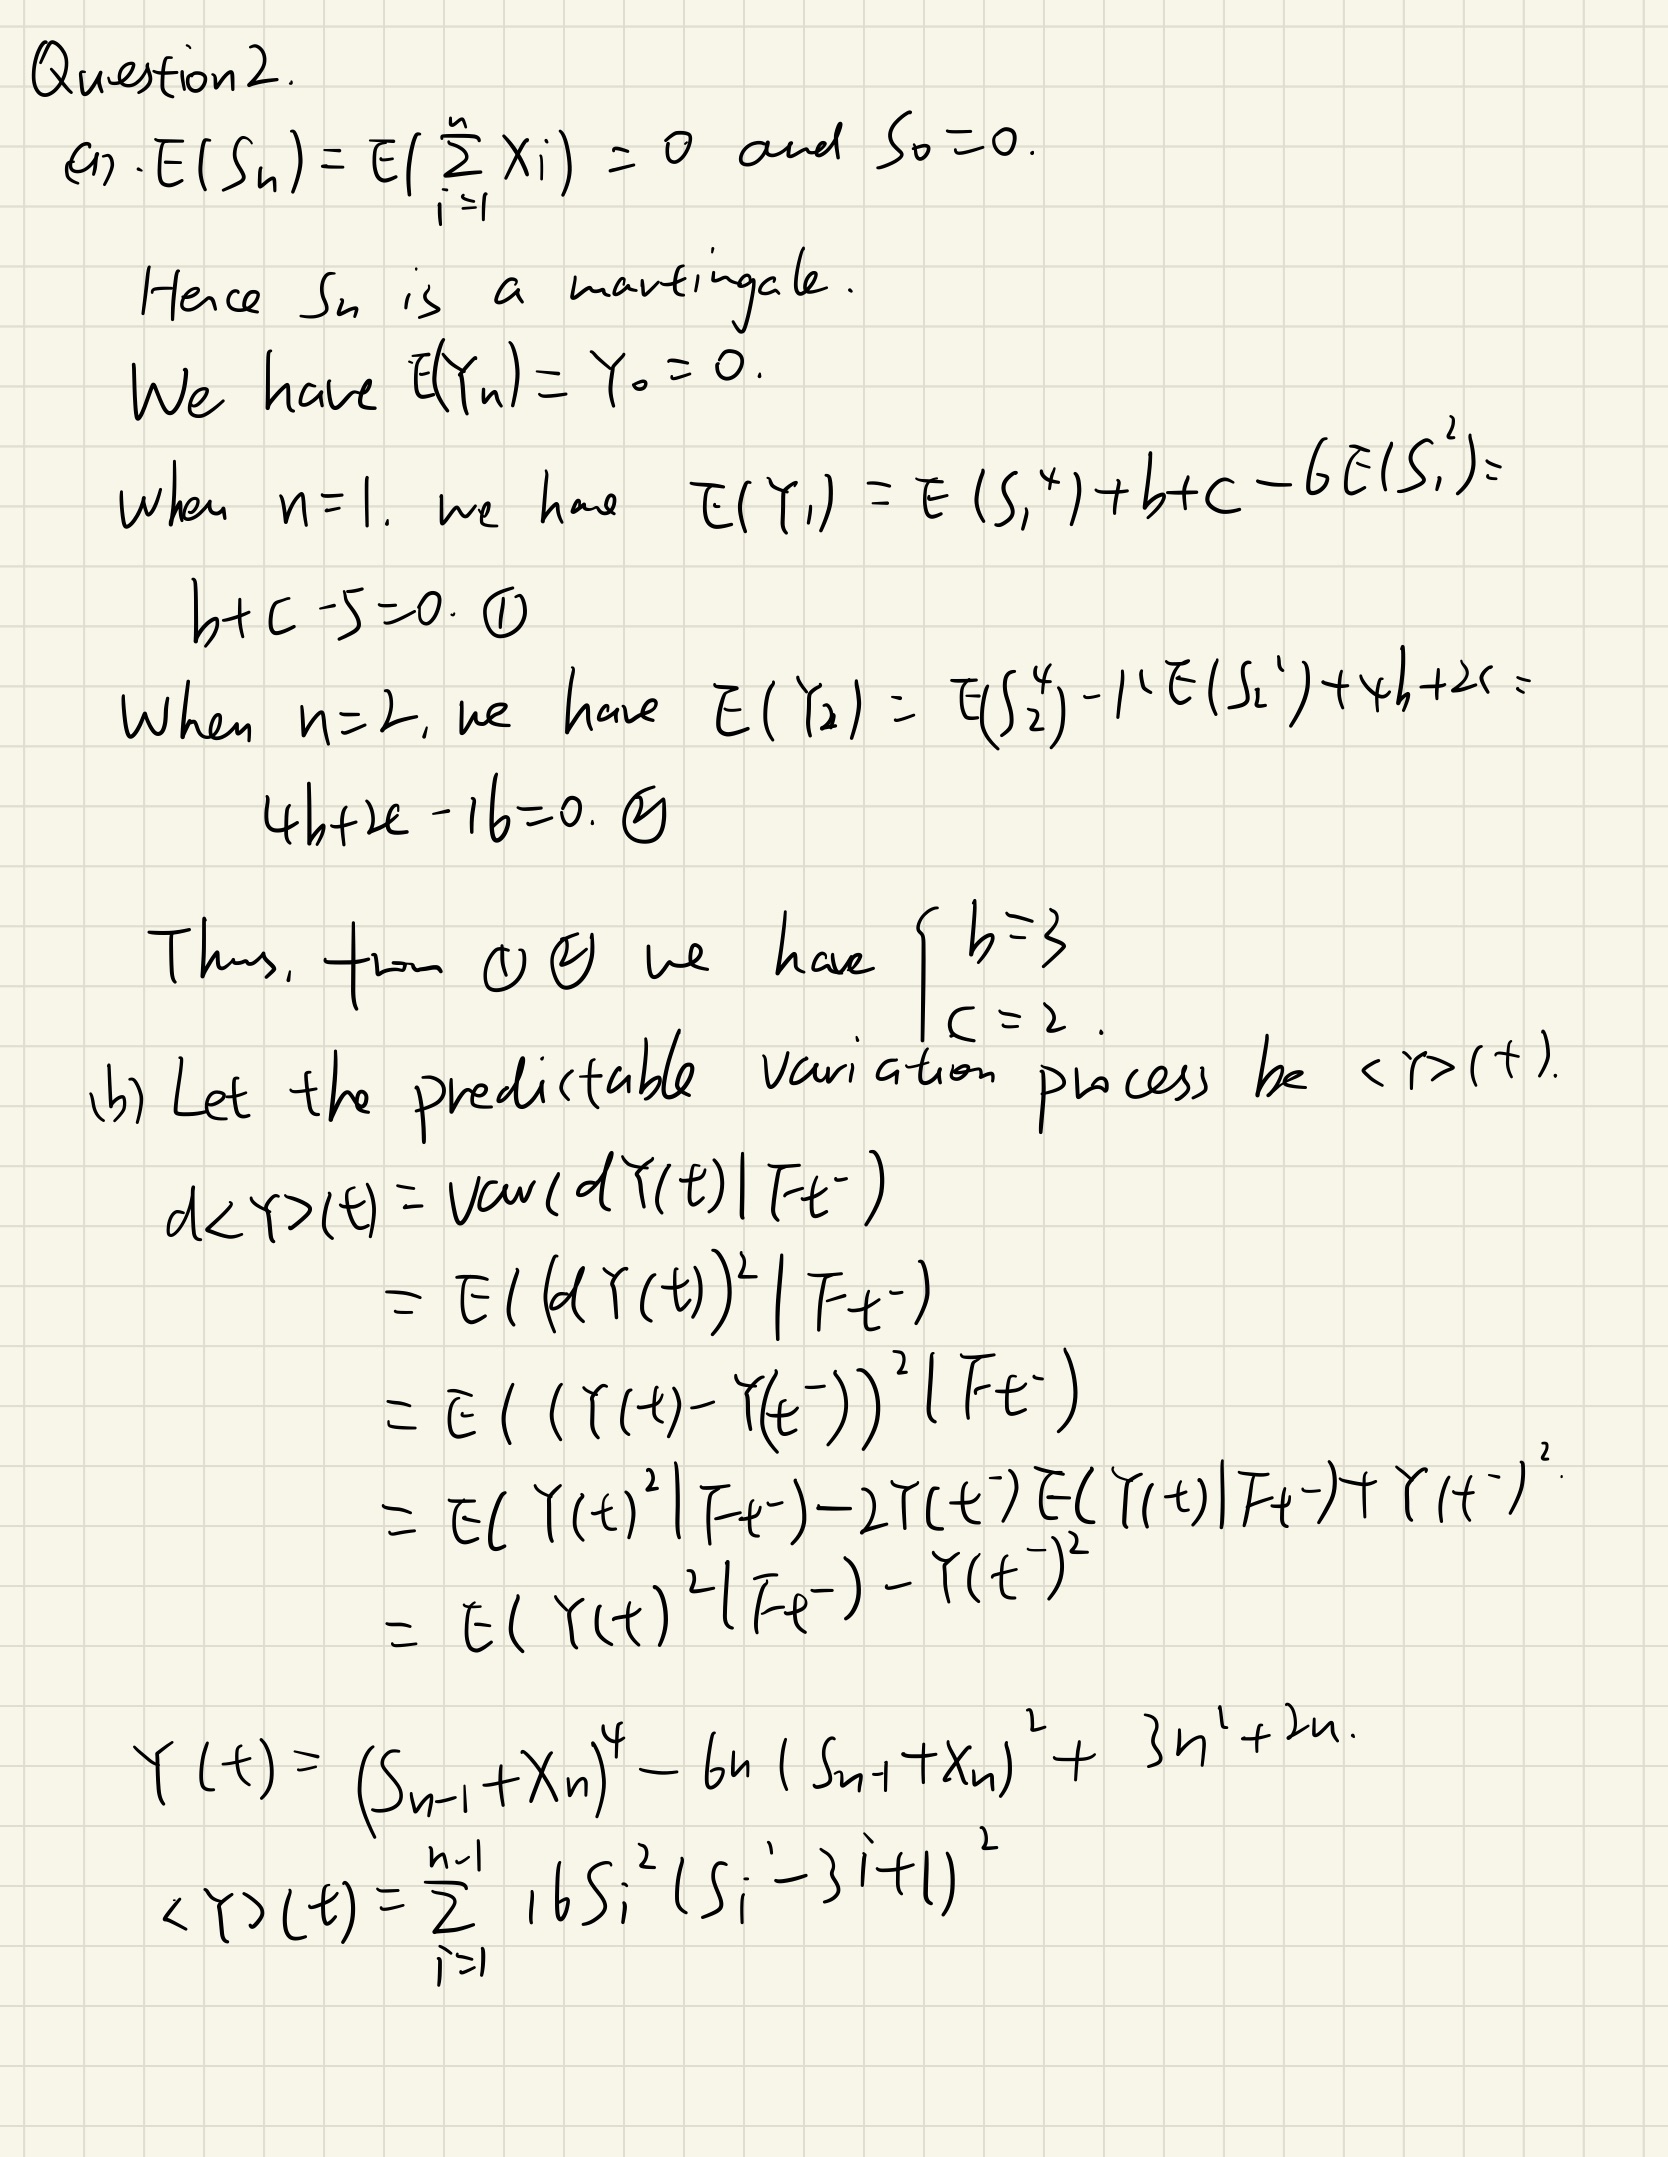 Question 2.
(a). E(Sₙ) = E(∑ᵢ₌₁ⁿ Xi) = 0 and S₀ = 0.
Hence Sₙ is a martingale.
We have E(Yₙ) = Y₀ = 0.
when n=1. we have E(Y₁) = E(S₁⁴) + b + c - 6E(S₁²) =
b + c - 5 = 0. ①
When n=2, we have E(Y₂) = E(S₂⁴) - 12E(S₂²) + 4b + 2c =
4b + 2c - 16 = 0. ②
Thus, from ① ② we have { b = 3
c = 2.
(b) Let the predictable variation process be <Y>(t).
d<Y>(t) = var(dY(t) | Ft⁻)
= E((dY(t))² | Ft⁻)
= E((Y(t) - Y(t⁻))² | Ft⁻)
= E(Y(t)² | Ft⁻) - 2Y(t⁻)E(Y(t) | Ft⁻) + Y(t⁻)².
= E(Y(t)² | Ft⁻) - Y(t⁻)²
Y(t) = (Sₙ₋₁ + Xₙ)⁴ - 6n(Sₙ₋₁ + Xₙ)² + 3n² + 2n.
<Y>(t) = ∑ᵢ₌₁ⁿ⁻¹ 16Sᵢ²(Sᵢ² - 3i + 1)²